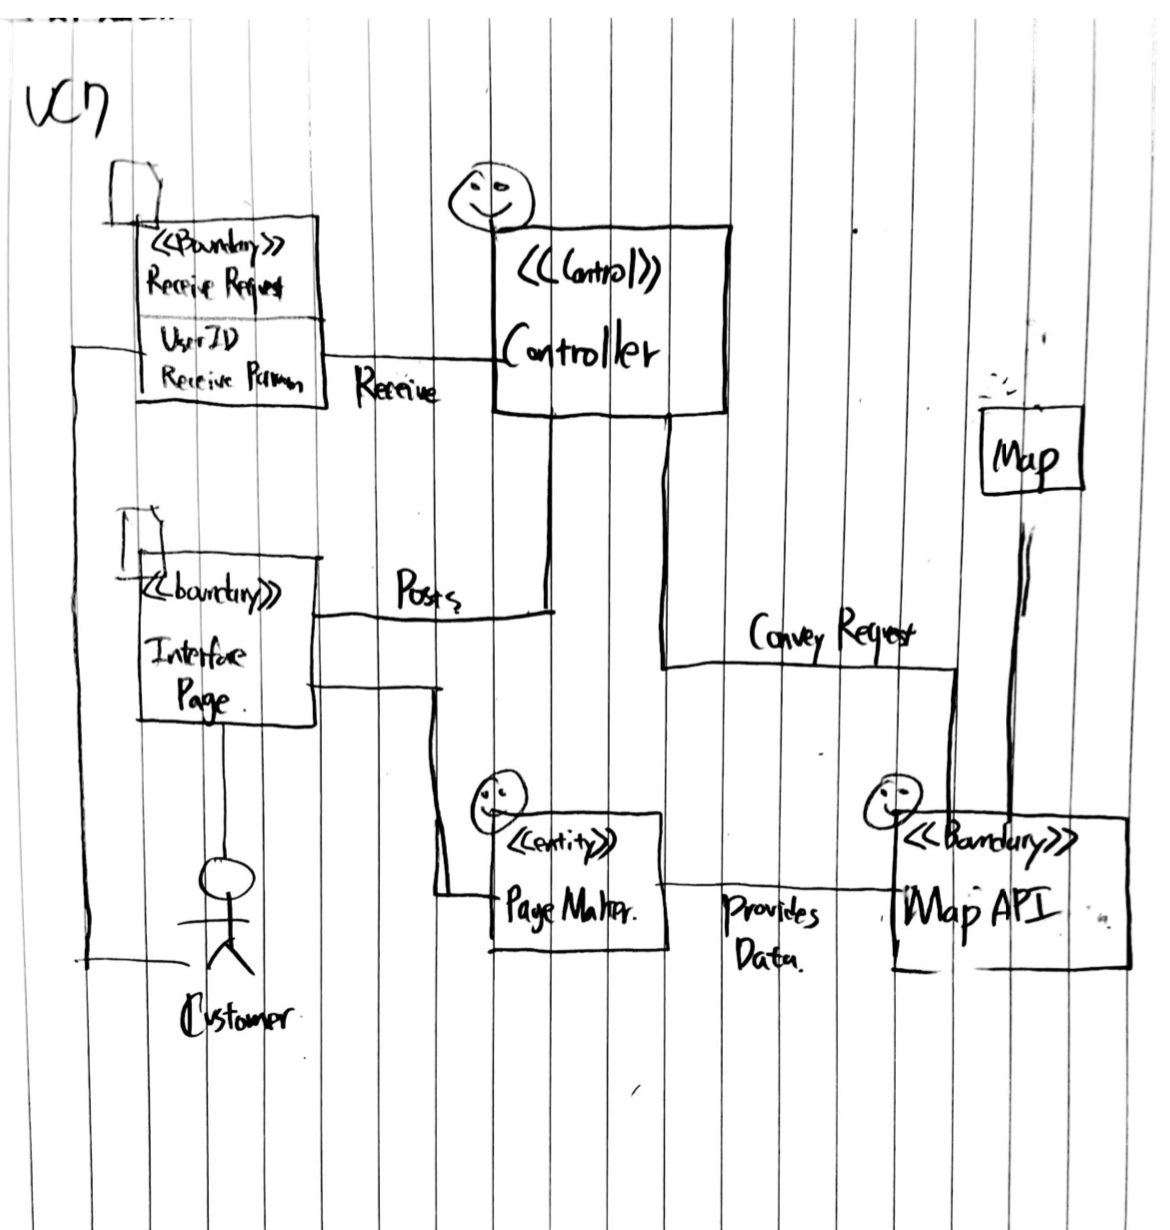 UC7
<<Boundary>>
Receive Request
UserID
Receive Param
Receive
<<Control>>
Controller
Map
<<boundary>>
Interface
Page.
Posts
Convey Request
<<entity>>
Page Maker.
Provides
Data.
<<Boundary>>
Map API
Customer